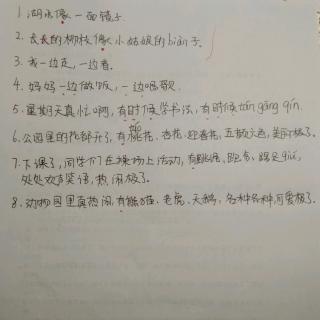 1. 湖水像一面镜子.
2. 长长的柳枝像小姑娘的biàn子.
3. 我一边走,一边看.
4. 妈妈一边做饭,一边唱歌.
5. 星期天真忙啊,有时候学书法,有时候tán gāng qín.
6. 公园里的花都开了,有桃花、杏花、迎春花,五颜六色,美丽极了.
7. 下课了,同学们在操场上活动,有跳绳、跑步、踢足qiú,
处处欢声笑语,热闹极了.
8. 动物园里真热闹,有熊猫、老虎、天鹅,各种各样,可爱极了.